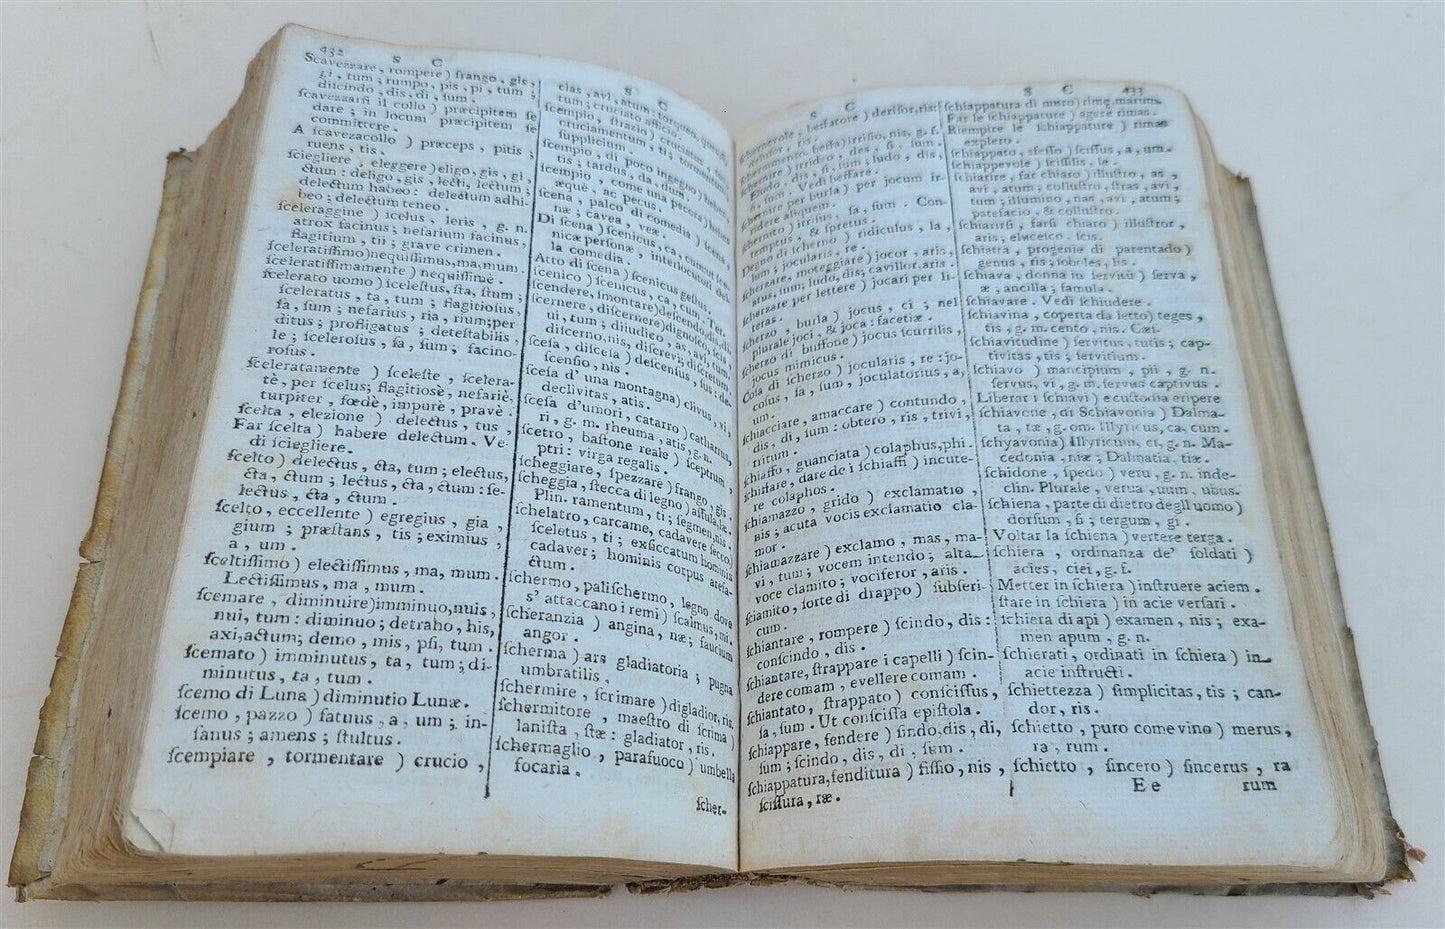 432 S C
Scavezzare, rompere) frango, gis,
gi, tum; rumpo, pis, pi, tum;
diſcindo, dis, di, ſum.
ſcavezzarſi il collo) præcipitem ſe
dare; in locum præcipitem ſe
committere.
A ſcavezzacollo) præceps, pitis;
ruens, tis.
ſciegliere, eleggere) eligo, gis, gi,
ctum: deligo, gis, lecti, lectum;
delectum habeo: delectum adhi-
beo; delectum teneo.
ſceleraggine) ſcelus, leris, g. n.
atrox facinus; nefarium facinus,
flagitium, tii; grave crimen.
ſceleratiſſimo) nequiſſimus, ma, mum.
ſceleratiſſimamente) nequiſſimè.
ſcelerato uomo) ſceleſtus, ſta, ſtum;
ſceleratus, ta, tum; flagitioſus,
ſa, ſum; nefarius, ria, rium; per
ditus; profligatus; deteſtabilis,
le; ſceleroſus, ſa, ſum; facino-
roſus.
ſceleratamente) ſceleſte, ſcelera-
tè, per ſcelus; flagitiosè, nefariè,
turpiter, fœdè, impurè, pravè.
ſcelta, elezione) delectus, tus.
Far ſcelta) habere delectum. Ve-
di ſciegliere.
ſcelto) delectus, cta, tum; electus,
cta, ctum; lectus, cta, ctum: ſe-
lectus, cta, ctum.
ſcelto, eccellente) egregius, gia,
gium; præſtans, tis; eximius,
a, um.
ſceltiſſimo) electiſſimus, ma, mum.
Lectiſſimus, ma, mum.
ſcemare, diminuire) imminuo, nuis,
nui, tum: diminuo; detraho, his,
axi, actum; demo, mis, pſi, tum.
ſcemato) imminutus, ta, tum; di-
minutus, ta, tum.
ſcemo di Luna) diminutio Lunæ.
ſcemo, pazzo) fatuus, a, um; in-
ſanus; amens; ſtultus.
ſcempiare, tormentare) crucio,
S C
cias, avi, atum; torqueo,
tum; cruciatu afficio.
ſcempio, ſtrazio) cruciatus,
cruciamentum, ti; tormentum,
ſupplicium.
ſcempio, di poco ingegno) hebes,
tis; tardus, da, dum.
ſcempio, come una pecora)
æquè, ac pecus.
ſcena, palco di comedia) ſcena,
næ; cavea, veæ.
Di ſcena) ſcenicus, ca, cum; ſce-
nicæ perſonæ, interlocutori del
la comedia.
Atto di ſcena) ſcenicus geſtus.
ſcenico) ſcenicus, ca, cum. Ter.
ſcendere, ſmontare) deſcendo, dis, di
ſcernere, diſcernere) dignoſco,
ui, tum; diiudico, as, avi, atum,
diſcerno, nis, diſcrevi; diſcretum.
ſceſa, diſceſa) deſcenſus, ſus: de-
ſcenſio, nis.
ſceſa d'una montagna) clivus, vi,
declivitas, atis.
ſceſa d'umori, catarro) catharrus,
ri, g. m. rheuma, atis, g. n.
ſcetro, baſtone reale) ſceptrum,
ptri: virga regalis.
ſcheggiare, ſpezzare) frango, gis.
ſcheggia, ſtecca di legno) aſſula, læ.
Plin. ramentum, ti; ſegmen, nis.
ſchelatro, carcame, cadavere ſecco)
ſceletus, ti; exſiccatum hominis
cadaver; hominis corpus arefa-
ctum.
ſchermo, paliſchermo, legno dove
s' attaccano i remi) ſcalmus, mi.
ſcheranzia) angina, næ; faucium
angor.
ſcherma) ars gladiatoria; pugna
umbratilis.
ſchermire, ſcrimare) digladior, ris.
ſchermitore, maeſtro di ſcrima)
laniſta, ſtæ: gladiator, ris.
ſchermaglio, parafuoco) umbella
focaria.
ſcher-
S C
ſchernevole, beffatore) deriſor, ris:
irriſor, ris.
beffa) irriſio, nis, g. f.
irrideo, des, ſi, ſum.
eludo, dis, ſi, ſum; ludo, dis,
Vedi beffare.
ſchernire per burla) per jocum ir-
ridere aliquem.
ſchernito) irriſus, ſa, ſum. Con-
temptus, & ſpretus.
Degno di ſcherno) ridiculus, la,
lum; jocularis, re.
ſcherzare, moteggiare) jocor, aris,
atus, ſum; ludo, dis; cavillor, aris.
ſcherzare per lettere) jocari per li-
teras.
ſcherzo, burla) jocus, ci; nel
plurale joci, & joca: facetiæ.
ſcherzo di buffone) jocus ſcurrilis,
jocus mimicus.
Coſa di ſcherzo) jocularis, re: jo-
coſus, ſa, ſum, joculatorius, a,
um.
ſchiacciare, amaccare) contundo,
dis, di, ſum: obtero, ris, trivi,
tritum.
ſchiaffo, guanciata) colaphus, phi.
ſchiaffare, dare de i ſchiaffi) incute-
re colaphos.
ſchiamazzo, grido) exclamatio,
nis; acuta vocis exclamatio cla-
mor.
ſchiamazzare) exclamo, mas, ma-
vi, tum; vocem intendo; alta
voce clamito; vociferor, aris.
ſciamito, ſorte di drappo) ſubſeri-
cum.
ſchiantare, rompere) ſcindo, dis:
conſcindo, dis.
ſchiantare, ſtrappare i capelli) ſcin-
dere comam, evellere comam.
ſchiantato, ſtrappato) conſciſſus,
ſa, ſum. Ut conſciſſa epiſtola.
ſchiappare, fendere) findo, dis, di,
ſum; ſcindo, dis, di, ſum.
ſchiappatura, fenditura) fiſſio, nis,
ſciſſura, ræ.
S C 433
ſchiappatura di muro) rime, marum.
Far le ſchiappature) agere rimas.
Riempire le ſchiappature) rimas
explero.
ſchiappato, ſfeſſo) ſciſſus, a, um.
ſchiappevole) ſciſſilis, le.
ſchiarire, far chiaro) illuſtro, as,
avi, atum; colluſtro, ſtras, avi,
tum; illumino, nas, avi, atum;
patefacio, & colluſtro.
ſchiarirſi, farſi chiaro) illuſtror,
aris; eluceſco. ſcis.
ſchiatta, progenie di parentado)
genus, ris; ſoboles, lis.
ſchiava, donna in ſervitù) ſerva,
æ; ancilla; famula.
ſchiavare. Vedi ſchiudere.
ſchiavina, coperta da letto) teges,
tis, g. m. cento, nis. Cæſ.
ſchiavitudine) ſervitus, tutis; cap-
tivitas, tis; ſervitium.
ſchiavo) mancipium, pii, g. n.
ſervus, vi, g. m. ſervus captivus.
Liberar i ſchiavi) e cuſtodia eripere
ſchiavone, di Schiavonia) Dalma-
ta, tæ, g. om. Illyricus, ca, cum.
ſchyavonia) Illyricum, ci, g. n. Ma-
cedonia, niæ; Dalmatia, tiæ.
ſchidone, ſpedo) veru, g. n. inde-
clin. Plurale, verua, uum, ubus.
ſchiena, parte di dietro degll uomo)
dorſum, ſi; tergum, gi.
Voltar la ſchiena) vertere terga.
ſchiera, ordinanza de' ſoldati)
acies, ciei, g. f.
Metter in ſchiera) inſtruere aciem.
ſtare in ſchiera) in acie verſari.
ſchiera di api) examen, nis; exa-
men apum, g. n.
ſchierati, ordinati in ſchiera) in
acie inſtructi.
ſchiettezza) ſimplicitas, tis; can-
dor, ris.
ſchietto, puro come vino) merus,
ra, rum.
ſchietto, ſincero) ſincerus, ra
E e rum